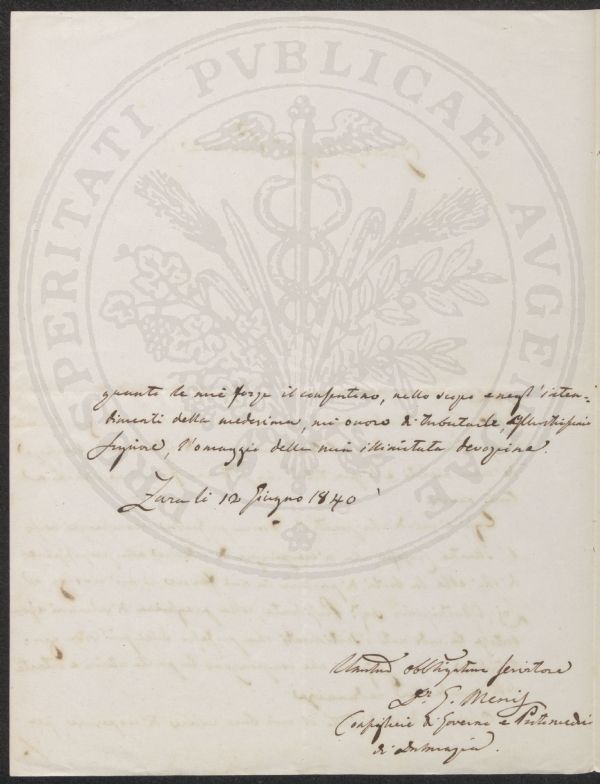 PROSPERITATI PVBLICAE AVGENDAE
quanto le mie forze il consentino, nello scopo e negl'inten-
dimenti della medesima, mi onoro di tributarle, Illustrissimo
Signore, l'omaggio della mia illimitata devozione.
Zara li 12 Giugno 1840
obbligatmo servitore
Dr. G. Menis
Consigliere di Governo e Protomedico
di Dalmazia.